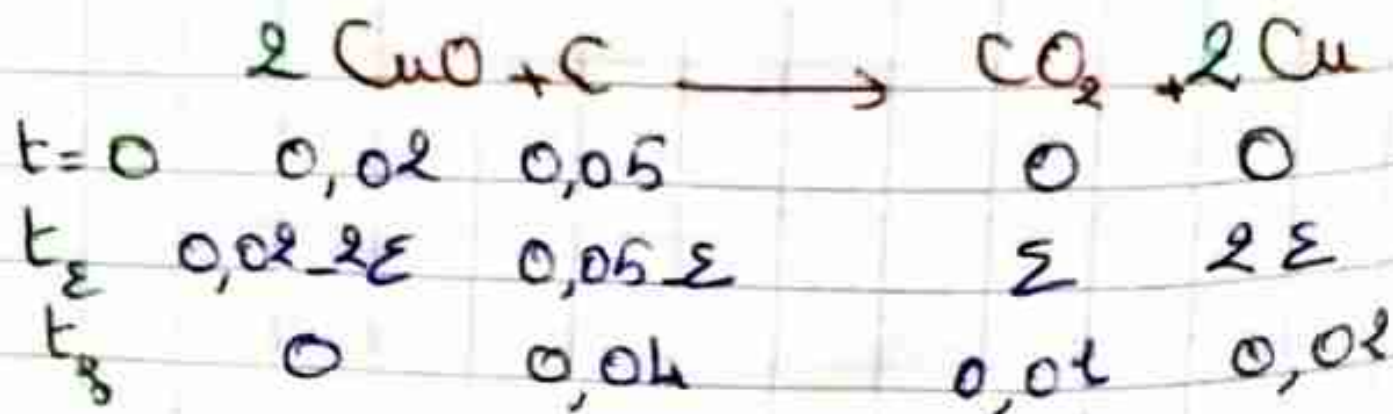 2 CuO + C → CO₂ + 2 Cu
t=0 0,02 0,05 0 0
tε 0,02-2ε 0,05-ε ε 2ε
tf 0 0,04 0,01 0,02